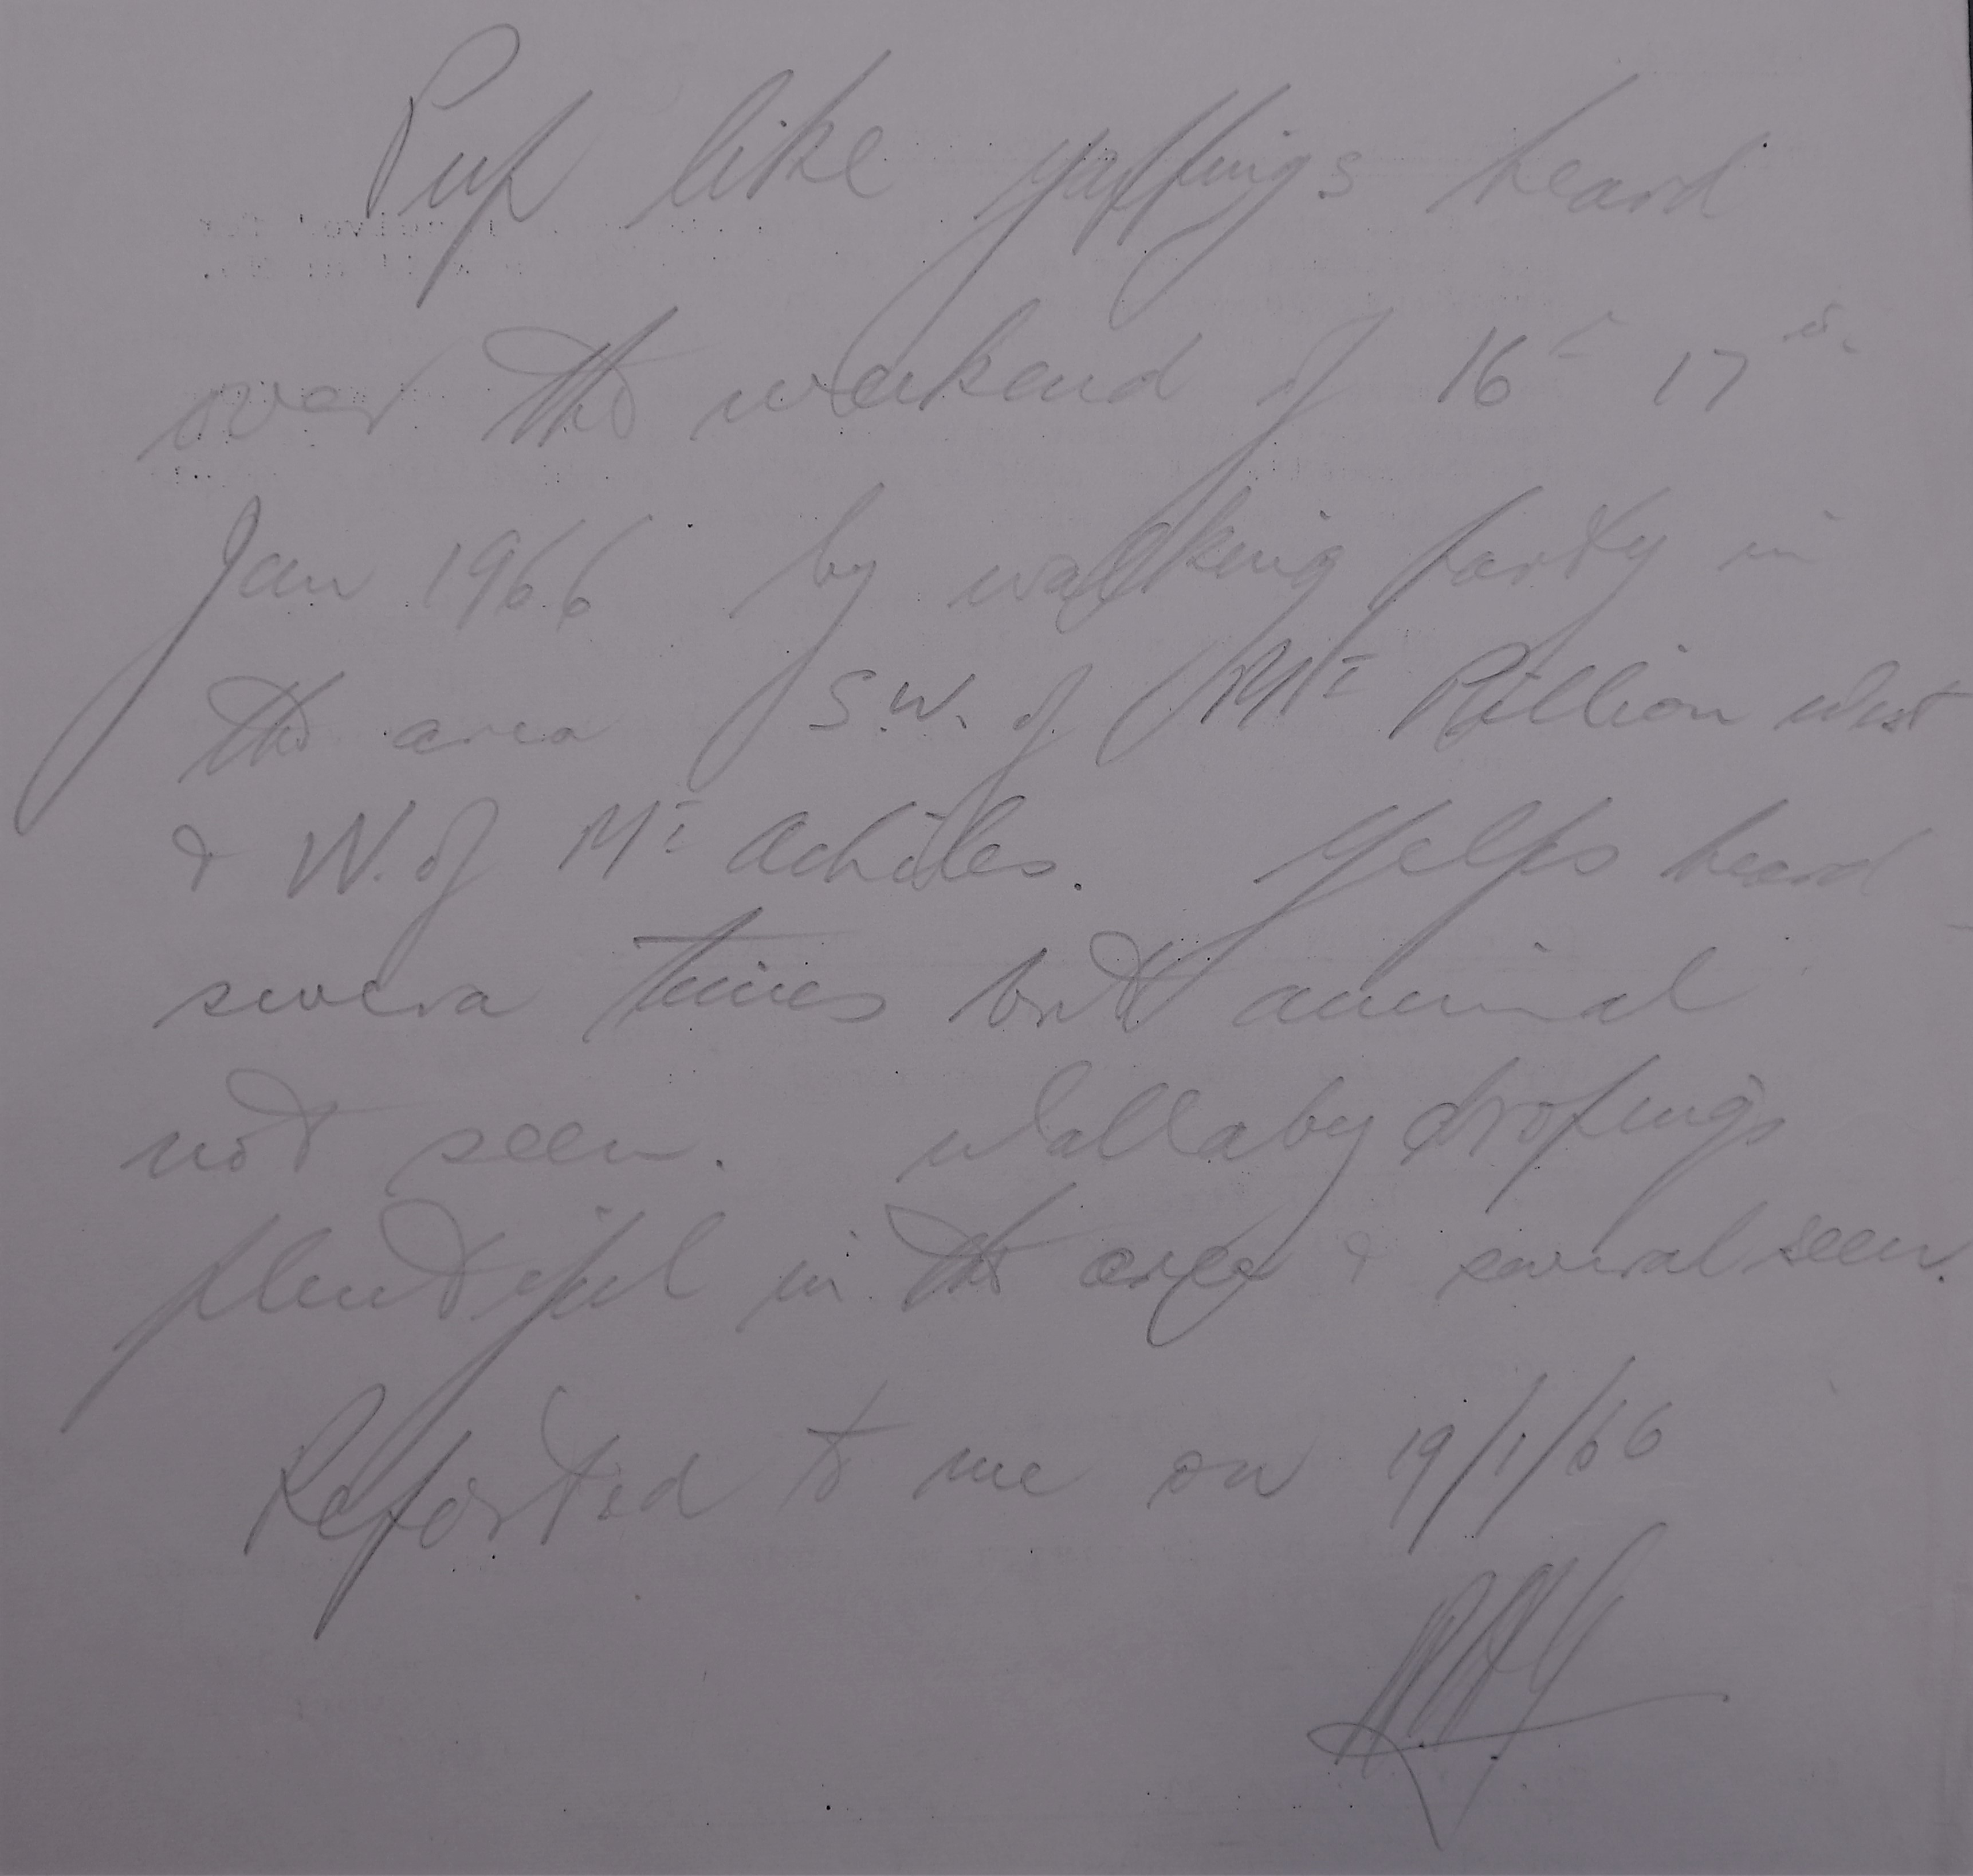 Pup like yappings heard
over the weekend of 16th 17th
Jan 1966 by walking party in
the area S.W. of Mt Pillion West
& W. of Mt Achilles. Yelps heard
severa times but animal
not seen. Wallaby dropings
plentiful in the area & several seen.
Reported to me on 19/1/66